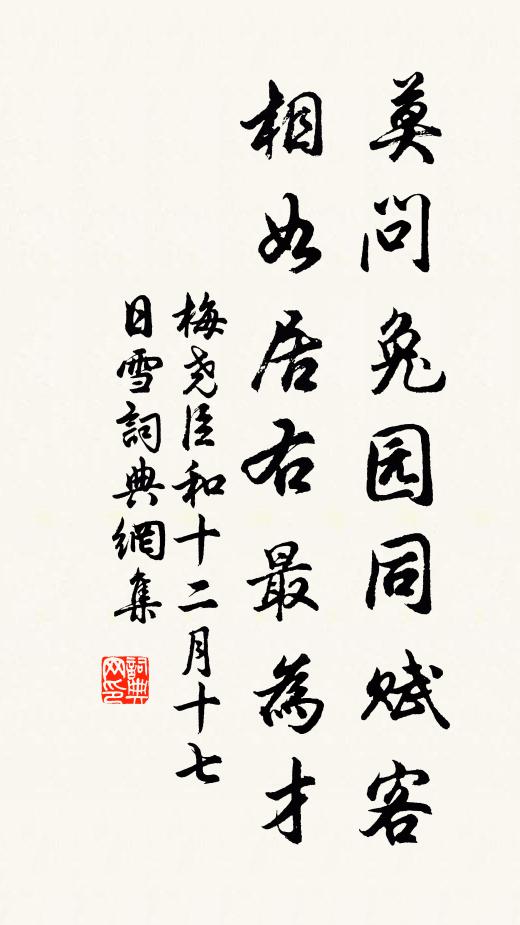 莫问兔园同赋客
相如居右最為才
梅尧臣和十二月十七
日雪詞典網集
詞典
网印